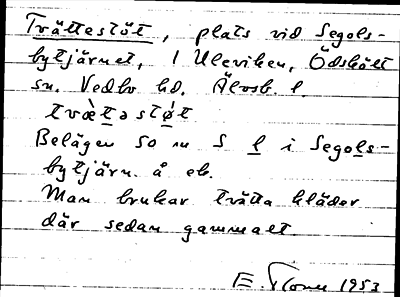 Tvättestöt, plats vid Segols-
bytjärnet, i Uleviken, Ödskölt
sn. Vedbo hd. Älvsb. l.
tvæ̀təstø̀t
Belägen 50 m S l i Segols-
bytjärn å ek.
Man brukar tvätta kläder
där sedan gammalt.
E. 1953